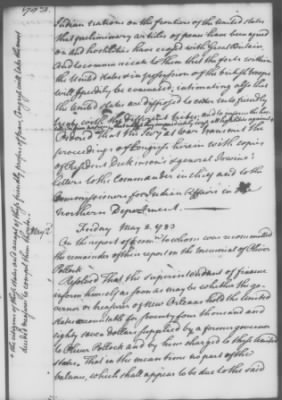 1783.
Indian nations on the frontiers of the United States
that preliminary articles of peace have been agreed
on and hostilities have ceased with Great Britain
And to communicate to them that the forts within
the United States in possession of the British troops
will speedily be evacuated, intimating also that
the United States are disposed to enter into friendly
treaty with the different tribes; and to inform the hos
Ordered That the Secy at War transmit the
proceedings of Congress herein with copies
of President Dickinson's & general Irwine's
letters to the Commander in chief and to the
Commissioners for Indian Affairs in the
Northern Department
Friday May 2. 1783
On the report of a comee to whom was recommitted
the remainder of their report on the memorial of Oliver
Pollock
Resolved That the superintendant of finance
inform himself as soon as may be whether the go-
vernor or treasurer of New Orleans hold the United
States accountable for seventy four thousand and
eighty seven dollars supplied by a former governor
to Oliver Pollock and by him charged to these United
States. That in the mean time no part of the
balance, which shall appear to be due to the said
the citizens of these states and accept of these friendly proffers of peace, Congress will take the most
decided measures to compel them thereto.
May 2